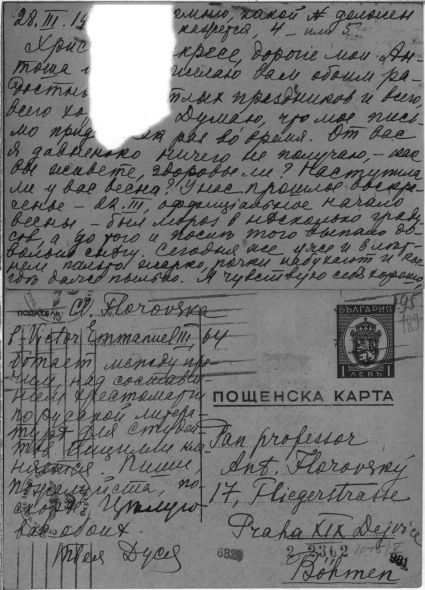 28. III. 19 какой № должен
кажется, 4 - или 5.
Христос кресе, дорогие мои Ан-
тоша и желаю вам обоим ра-
достных тлых праздников и всего,
всего хо Думаю, что мое пись-
мо придет как раз во время. От вас
я давненько ничего не получаю, - как
вы живете, здоровы ли? Наступила
ли у вас весна? У нас прошлое воскре-
сенье - 22. III, официальное начало
весны, - был мороз в несколько граду-
сов, а до того и после того выпало до-
вольно снегу. Сегодня же уже и в лет-
нем пальто жарко, почки набухают и
даже пыльно. Я чувствую себя хорошо,
ПОДАТЕЛЬ: Cl. Florovska
Victor Emmanuel III 64
ботает между про-
чим, над составле-
нием хрестоматии
по русской литера-
туре для студен-
тов. Пиши
пожалуйста, по-
скорее. Целую
вас обоих.
Твоя Дуся
БЪЛГАРИЯ
1 ЛЕВЪ 1
195
189
ПОЩЕНСКА КАРТА
Pan professor
Ant. Florovský
17, Fliegerstrasse
Praha XIX Dejvice
2 2362
Böhmen
6820
991